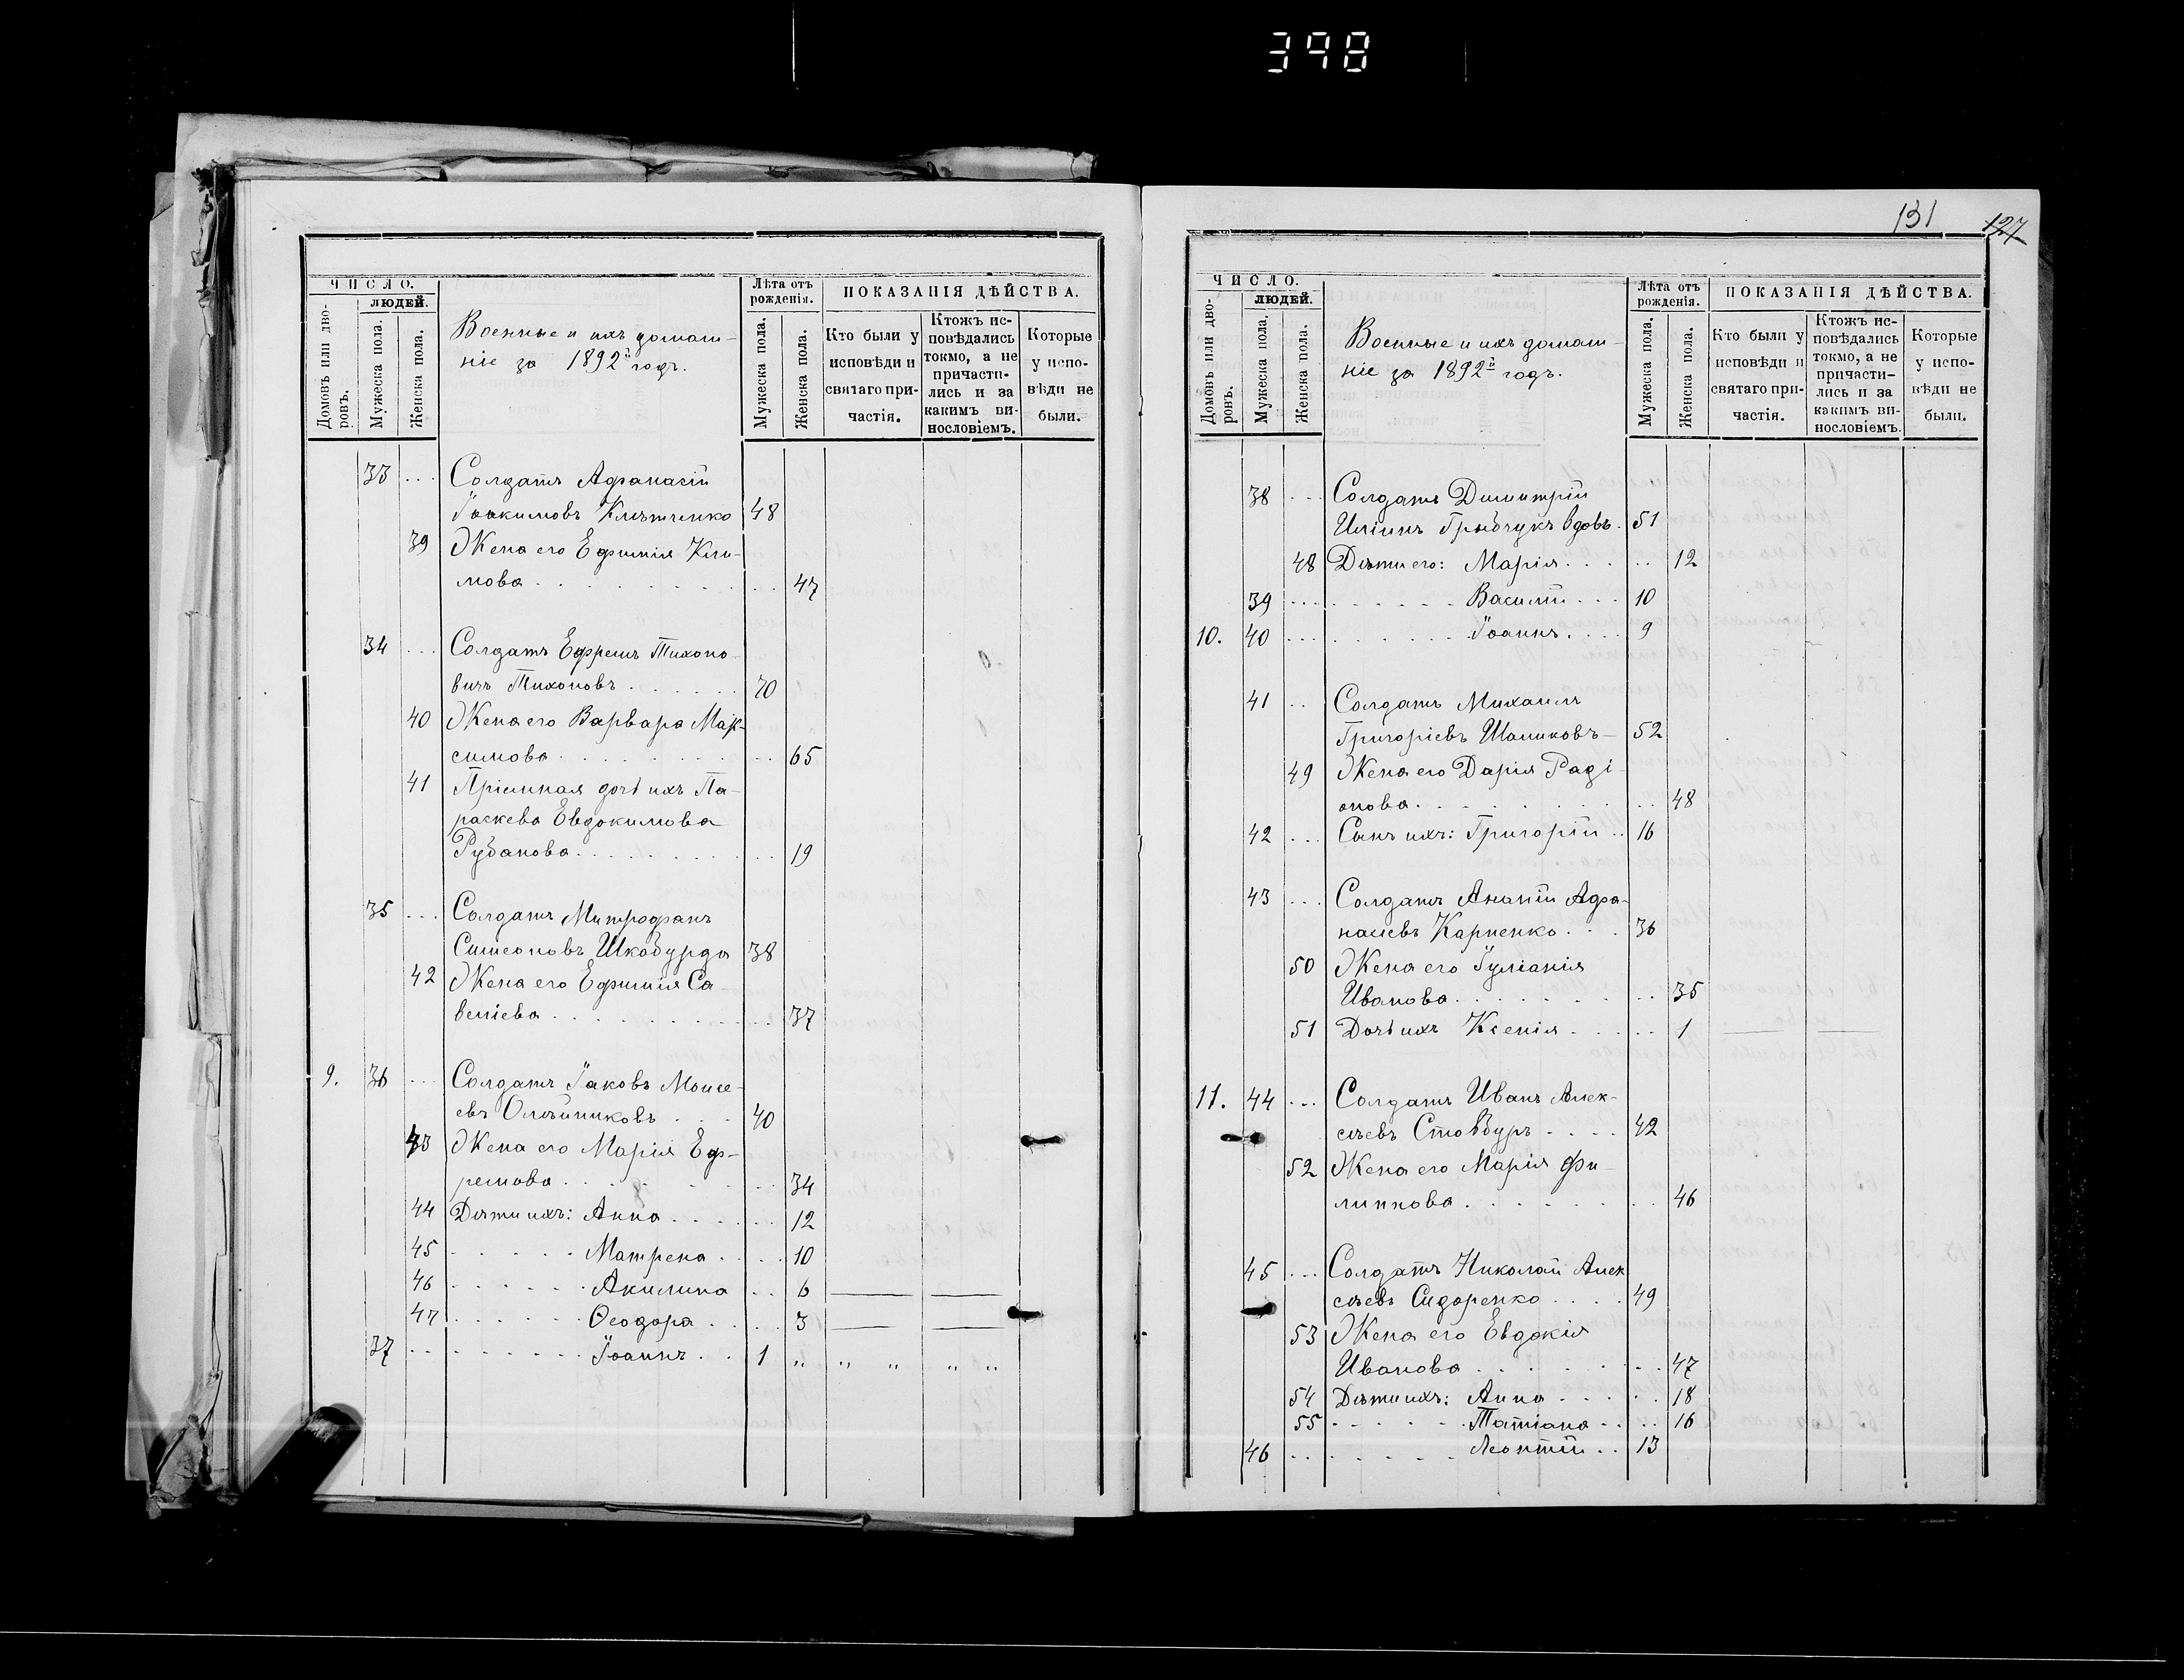 398
ЧИСЛО.
ЛЮДЕЙ.
Домовъ или дво-
ровъ.
Мужеска пола.
Женска пола.
Военные и ихъ домаш-
ніе за 1892й годъ.
Лѣта отъ
рожденія.
Мужеска пола.
Женска пола.
ПОКАЗАНІЯ ДѢЙСТВА.
Кто были у
исповѣди и
святаго при-
частія.
Ктожъ ис-
повѣдались
токмо, а не
причасти-
лись и за
какимъ ви-
нословіемъ.
Которые
у испо-
вѣди не
были.
33 ... Солдатъ Афанасій
Іоакимовъ Клѣтченко 48
39 Жена его Ефимія Кли-
мова . . . . 47
34 ... Солдатъ Ефремъ Тихоно-
вичъ Тихоновъ . . . . 70
40 Жена его Варвара Мак-
симова . . . . 65
41 Пріемная дочь ихъ Па-
раскева Евдокимова
Рубанова . . . . 19
35 ... Солдатъ Митрофанъ
Симеоновъ Шкабурда 38
42 Жена его Ефимія Са-
веліева . . . . 37
9. 36 ... Солдатъ Іаковъ Моисе-
евъ Олѣйниковъ . . . 40
43 Жена его Марія Еф-
ремова . . . . 34
44 Дѣти ихъ: Анна . . . . 12
45 . . . . Матрена . . . . 10
46 . . . . Акилина . . 6
47 . . . . Ѳеодора . . . 3
37 . . . . Іоаннъ . . 1 " " " " "
131 127
ЧИСЛО.
ЛЮДЕЙ.
Домовъ или дво-
ровъ.
Мужеска пола.
Женска пола.
Военные и ихъ домаш-
ніе за 1892й годъ.
Лѣта отъ
рожденія.
Мужеска пола.
Женска пола.
ПОКАЗАНІЯ ДѢЙСТВА.
Кто были у
исповѣди и
святаго при-
частія.
Ктожъ ис-
повѣдались
токмо, а не
причасти-
лись и за
какимъ ви-
нословіемъ.
Которые
у испо-
вѣди не
были.
38 ... Солдатъ Димитрій
Иліинъ Грыбчукъ вдовъ. 51
48 Дѣти его: Марія . . . . 12
39 . . . . Василій . . . 10
10. 40 . . . . Іоаннъ . . . . 9
41 .. Солдатъ Михаилъ
Григоріевъ Шаликовъ – 52
49 Жена его Дарія Раді-
онова . . . . 48
42 ... Сынъ ихъ: Григорій .. 16
43 ... Солдатъ Ананій Афа-
насіевъ Карпенко . . . 36
50 Жена его Іуліанія
Иванова . . . . 35
51 Дочь ихъ Ксенія . . . . 1
11. 44 ... Солдатъ Иванъ Алек-
сѣевъ Стовбуръ . . . . 42
52 Жена его Марія Фи-
липпова . . . . 46
45 ... Солдатъ Николай Алек
сѣевъ Сидоренко . . . . 49
53 Жена его Евдокія
Иванова . . . . 47
54 Дѣти ихъ: Анна . . . . 18
55 . . . . Татіана . . . . 16
46 . . . . Леонтій .. 13